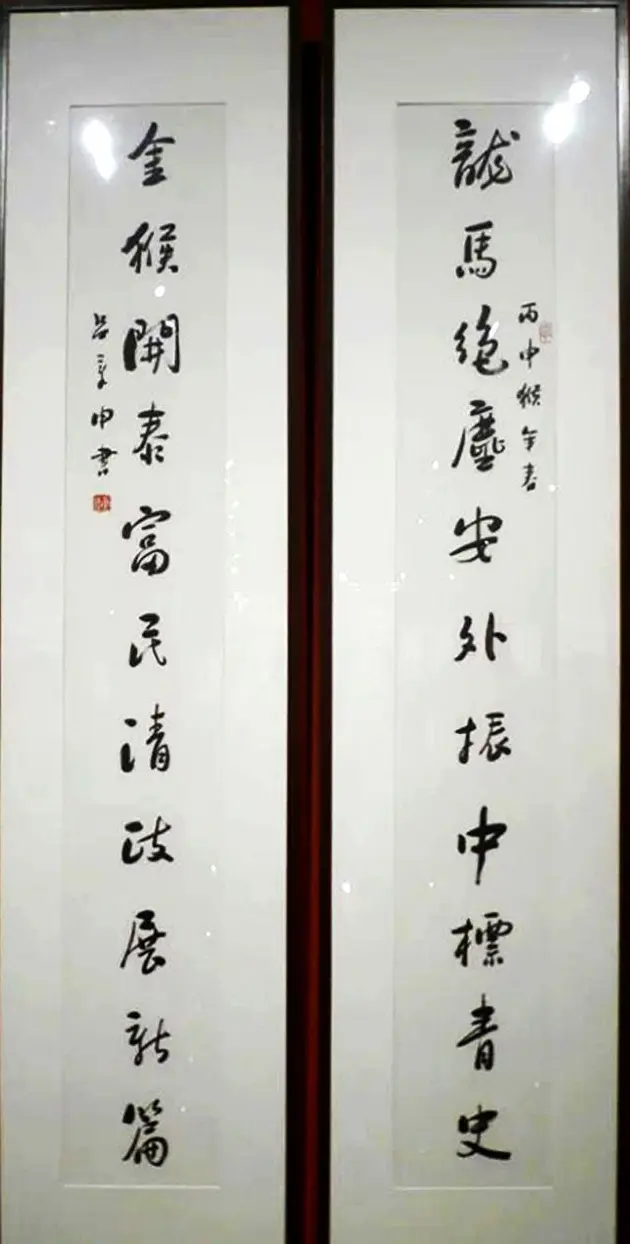 龍馬絕塵安外振中標青史
丙申猴年春
金猴開泰富民清政展新篇
呂章申書